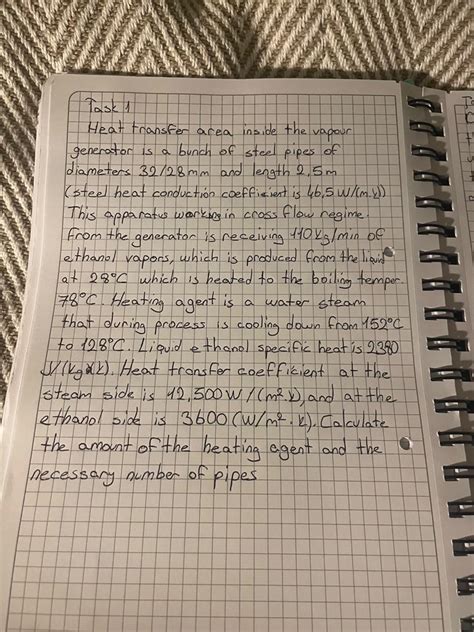 Task 1
Heat transfer area inside the vapour
generator is a bunch of steel pipes of
diameters 32/28mm and length 2,5m
(steel heat conduction coefficient is 46,5 W/(m.k))
This apparatus working in cross flow regime.
From the generator is receiving 110kg/min of
ethanol vapors, which is produced from the liquid
at 28°C which is heated to the boiling temper.
78°C. Heating agent is a water steam
that during process is cooling down from 152°C
to 128°C. Liquid ethanol specific heat is 2380
J/(kg×k). Heat transfer coefficient at the
steam side is 12,500W/(m².k), and at the
ethanol side is 3600(W/m².k). Calculate
the amount of the heating agent and the
necessary number of pipes